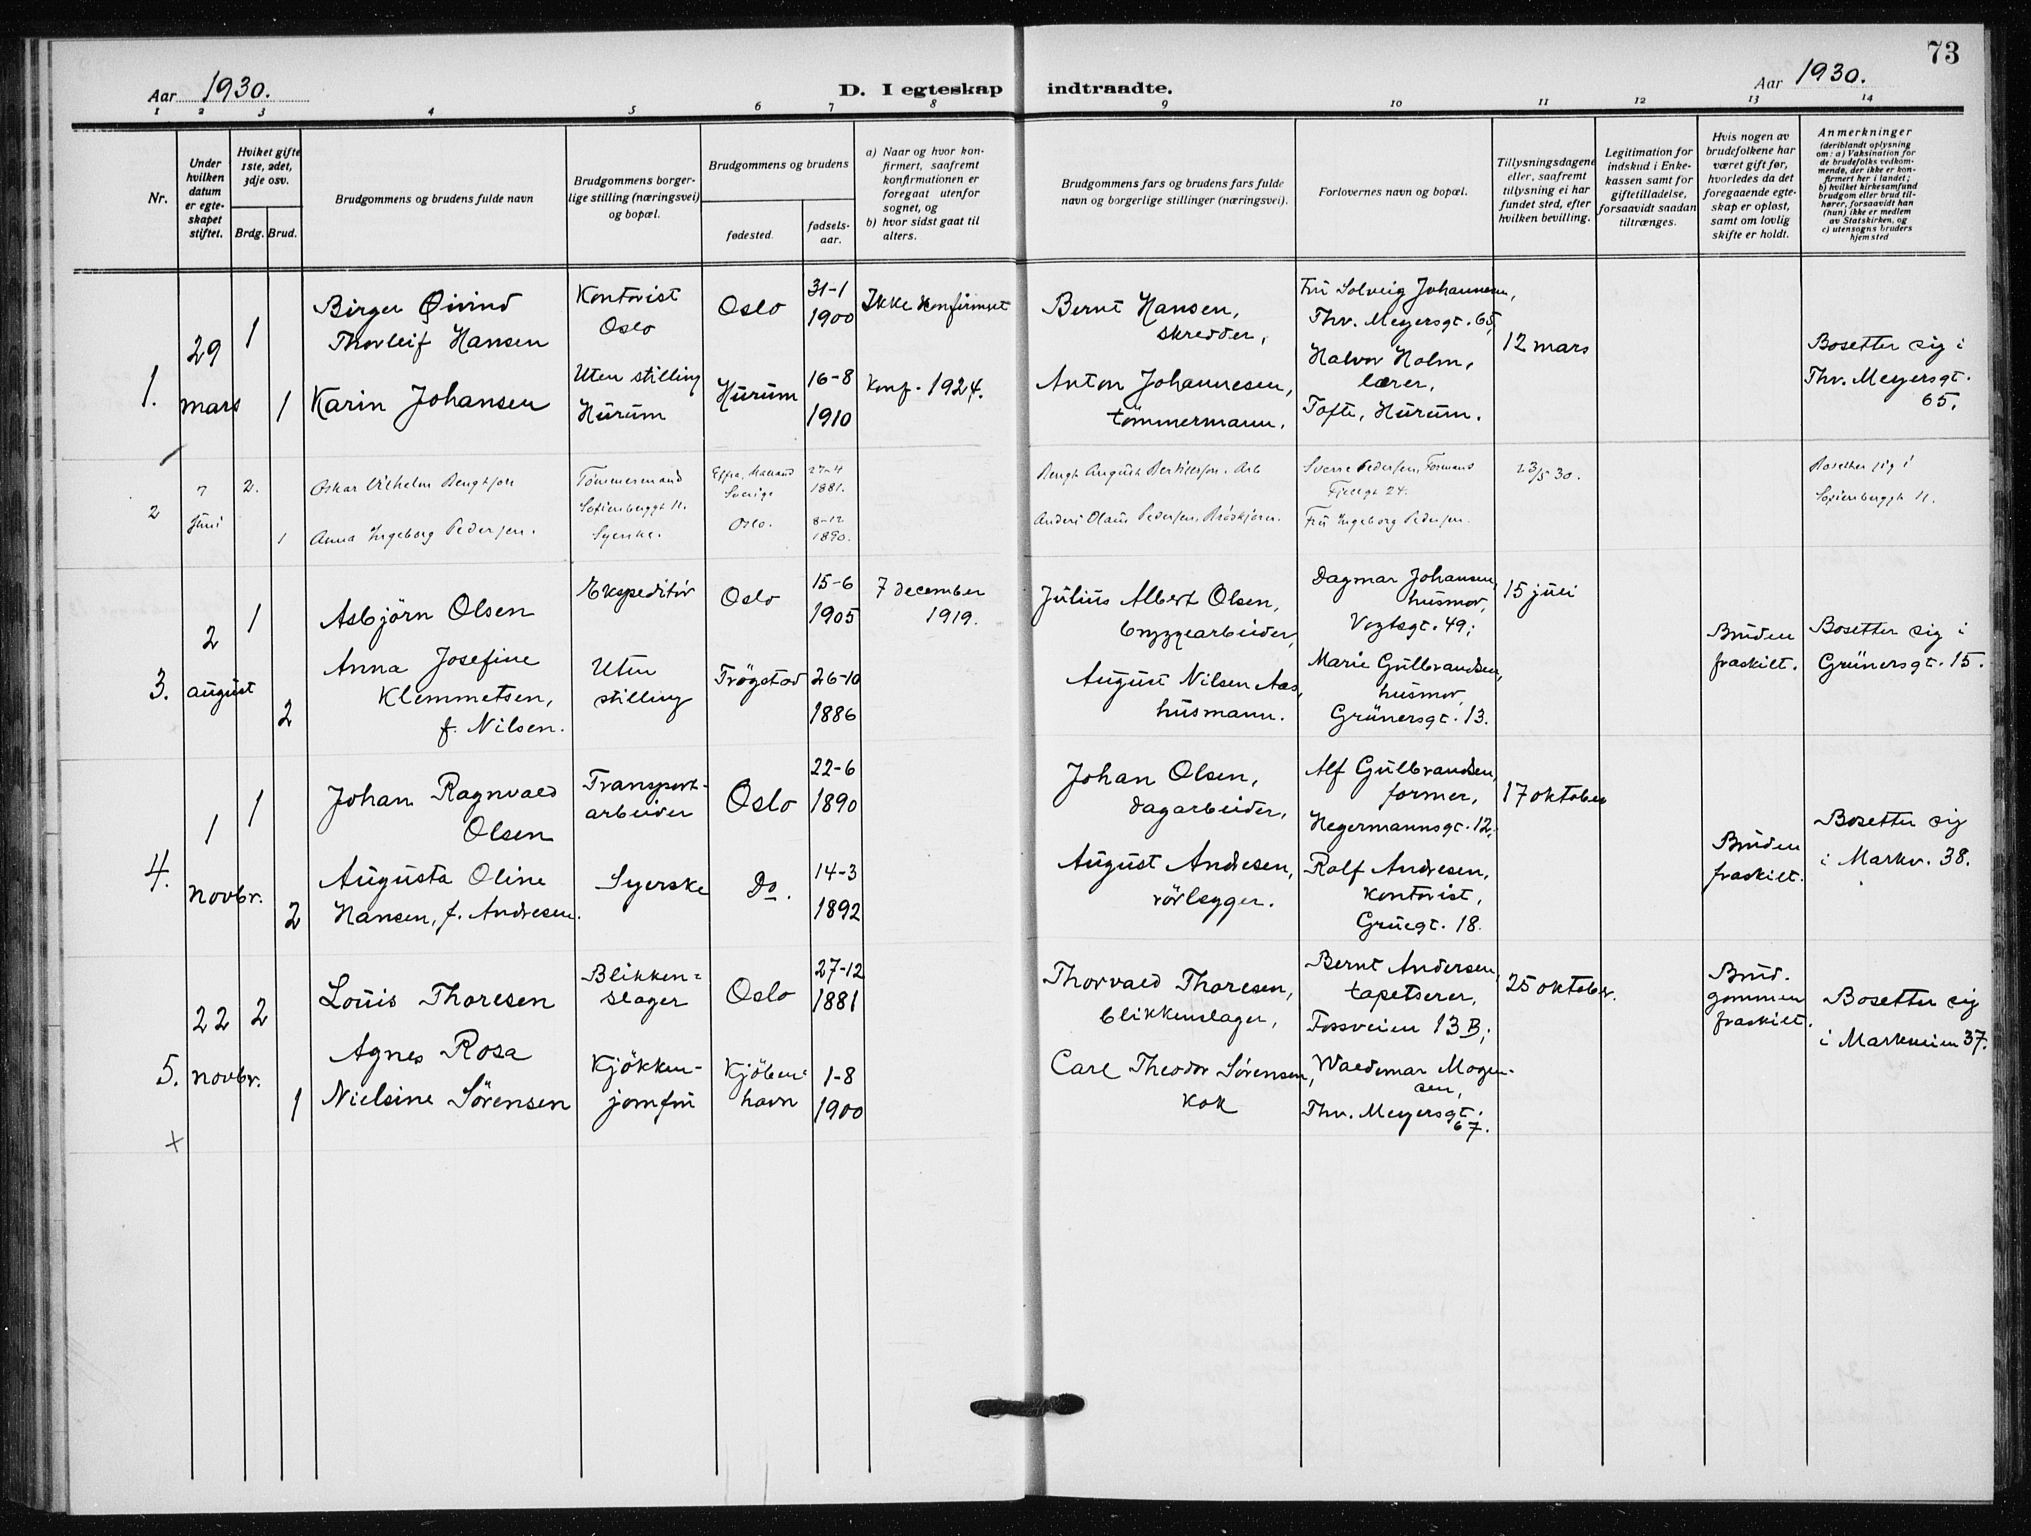 73
Aar 1930.
D. I egteskap indtraadte.
Aar 1930.
1 2 3 4 5 6 7 8 9 10 11 12 13 14
Nr.
Under
hvilken
datum
er egte-
skapet
stiftet.
Hviket gifte
1ste, 2det,
3dje osv.
Brdg. Brud.
Brudgommens og brudens fulde navn
Brudgommens borger-
lige stilling (næringsvei)
og bopæl.
Brudgommens og brudens
fødested.
fødsels-
aar.
a) Naar og hvor kon-
firmert, saafremt
konfirmationen er
foregaat utenfor
sognet, og
b) hvor sidst gaat til
alters.
Brudgommens fars og brudens fars fulde
navn og borgerlige stillinger (næringsvei).
Forlovernes navn og bopæl.
Tillysningsdagene
eller, saafremt
tillysning ei har
fundet sted, efter
hvilken bevilling.
Legitimation for
indskud i Enke-
kassen samt for
giftetilladelse,
forsaavidt saadan
tiltrænges.
Hvis nogen av
brudefolkene har
været gift før,
hvorledes da det
foregaaende egte-
skap er opløst,
samt om lovlig
skifte er holdt.
Anmerkninger
(deriblandt oplysning
om: a) Vaksination for
de brudefolks vedkom-
mende, der ikke er kon-
firmert her i landet;
b) hvilket kirkesamfund
brudgom eller brud til-
hører, forsaavidt han
(hun) ikke er medlem
av Statskirken, og
c) utensogns bruders
hjemsted
1.
29
mars
1
Birger Øivind
Thorleif Hansen
Kontorist
Oslo
Oslo
31-1
1900
Ikke konfirmert
Bernt Hansen,
skredder,
Fru Solveig Johannesen,
Thv. Meyersgt. 65,
12 mars
Bosetter sig i
Thv. Meyersgt.
65.
1
Karin Johansen
Uten stilling
Hurum
Hurum
16-8
1910
Konf. 1924.
Anton Johannesen,
tömmermann.
Halvor Holm,
lærer,
Tofte, Hurum.
2
7
Juni
2.
Oskar Vilhelm Bengtson
Tømmermand
Sofienberggt 11.
Halland
Sverige
27-4
1881.
Bengt August
Sverre Pedersen, Formand
24.
23/5 30.
Bosetter sig i
Sofienberggt 11.
1
Anna Ingeborg Pedersen.
Syerske.
Oslo.
8-12
1890.
Anders Olaus Pedersen,
Fru Ingeborg Pedersen.
3.
2
august
1
Asbjörn Olsen
Ekspeditör
Oslo
15-6
1905
7 december
1919.
Julius Albert Olsen,
bryggearbeider,
Dagmar Johansen,
husmor,
Vogtsgt. 49;
15 juli
Bruden
fraskilt.
Bosetter sig i
Grünersgt. 15.
2
Anna Josefine
Klemmetsen,
f. Nilsen.
Uten
stilling
Trögstad
26-10
1886
August Nilsen Aas,
husmann.
Marie Gulbrandsen,
husmor,
Grünersgt. 13.
4.
1
novbr.
1
Johan Ragnvald
Olsen
Transport-
arbeider
Oslo
22-6
1890
Johan Olsen,
dagarbeider,
Alf Gulbrandsen,
former,
Hegermannsgt. 12;
17 oktober
Bruden
fraskilt.
Bosetter sig
i Markv. 38.
2
Augusta Oline
Hansen, f. Andresen.
Syerske
Do.
14-3
1892
August Andresen,
rörlegger.
Rolf Andresen,
kontorist,
Gruegt. 18.
5.
22
novbr.
2
Louis Thoresen
Blikken=
slager
Oslo
27-12
1881
Thorvald Thoresen,
blikkenslager,
Bernt Andersen,
tapetserer,
Fossveien 13 B;
25 oktober.
Brud-
gommen
fraskilt.
Bosetter sig
i Markveien 37.
1
Agnes Rosa
Nielsine Sörensen
Kjökken-
jomfru
Kjöben-
havn
1-8
1900
Carl Theodor Sörensen,
kok
Waldemar Mogen-
sen,
Thv. Meyersgt.
67.
x